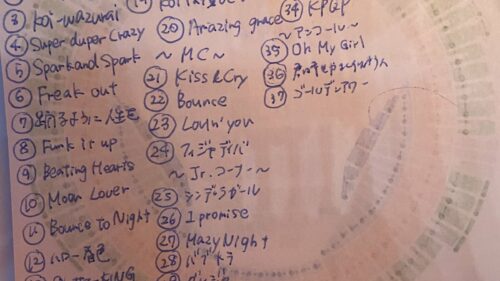 ③ koi-wazurai
④ Super duper crazy
⑤ Spark and Spark
⑥ Freak out
⑦ 踊るように人生を
⑧ Funk it up
⑨ Beating Hearts
⑩ Moon Lover
⑪ Bounce To Night
⑫ ハロー 春色
⑬
⑲ koi
⑳ Amazing grace
～MC～
㉑ Kiss & Cry
㉒ Bounce
㉓ Lovin' you
㉔ フィジャディバ
～Jr.コーナー～
㉕ シンデレラガール
㉖ I promise
㉗ Mazy Night
㉘
㉞ KPQP
～アンコール～
㉟ Oh My Girl
㊱
㊲